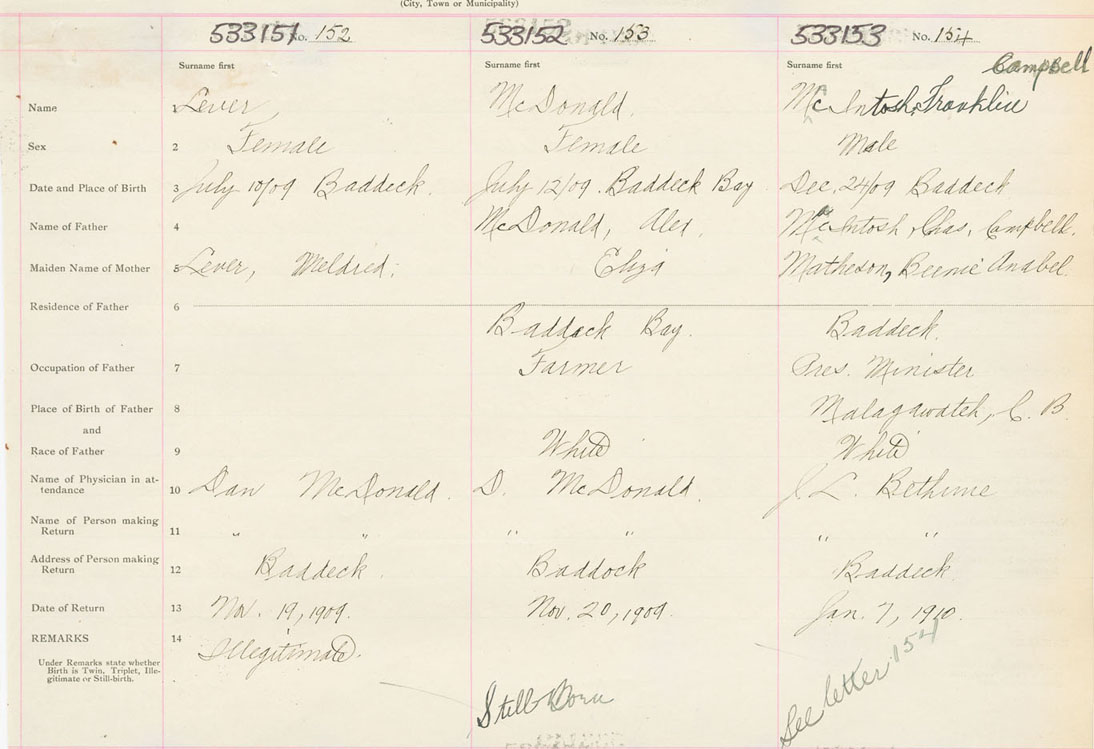 (City, Town or Municipality)
533151 No. 152 533152 No. 153 533153 No. 154
Surname first Surname first Surname first Campbell
Name 1 Lever McDonald. McIntosh, Franklin
Sex 2 Female Female Male
Date and Place of Birth 3 July 10/09 Baddeck July 12/09. Baddeck Bay Dec. 24/09 Baddeck
Name of Father 4 McDonald, Alex. McIntosh, Chas, Campbell.
Maiden Name of Mother 5 Lever, Meldried; Eliza Matheson, Beenie Anabel.
Residence of Father 6
Baddack Bay. Baddeck.
Occupation of Father 7 Farmer Pres. Minister
Place of Birth of Father 8 Malagawatch, C. B.
and
Race of Father 9 White White
Name of Physician in at-
tendance 10 Dan McDonald. D. McDonald. J L. Bethune
Name of Person making
Return 11 " " " " " "
Address of Person making
Return 12 Baddeck. Baddock Baddeck.
Date of Return 13 Nov. 19, 1909. Nov. 20, 1909. Jan. 7, 1910.
REMARKS 14 Illegitimate.
Under Remarks state whether
Birth is Twin, Triplet, Ille-
gitimate or Still-birth.
Still Born See letter 154